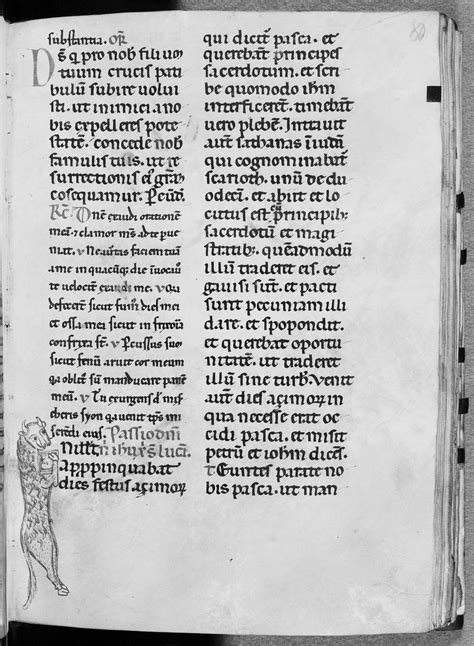 substantia. or̄
D̄s q̇ pro nob filiū
tuum crucis pati
bulū subire volui
sti. ut inimici a no
bis expelleres pote
statē. concede nob
famulis tuis. ut re
surrectionis ei gr̄am
cōsequamur. P eund̄.
Dn̄e exaudi orationem
meā. ⁊ clamor ms̄ ad te pue
niat. v Ne autas faciem tuā
a me in quacūq; die īvocauero
te velociter exaudi me. v Qia
defecerūt sicut fum dies mei
et ossa mea sicut in frixorio
confrixa st̄. v Percussus sum
sicut fenū. aruit cor meum
qa oblit̄ sū manducare panē
meū. v Tu exurgens dn̄e mi
sereberis syon qa venit tps mi
serendi eius. Passio dn̄i
nr̄i ih̄u xp̄i s. lucā.
Appropinquabat
dies festus aȝimoꝝ
qui dicit̄ pasca. et
querebant principes
sacerdotum. et scri
be quomodo ih̄m
interficerent. timebant
vero plebem. Intravit
aut̄ sathanas ī iudā
qui cognominabat̄
scarioth. unū de du
odecī. et abiit et lo
cutus est cū principib;
sacerdotū et magi
stratib;. quēadmodū
illū traderet eis. et
gavisi sunt. et pacti
sunt pecuniam illi
dare. et spopondit.
et querebat oportu
nitatē. ut traderet
illū sine turb̄. Venit
aut̄ dies aȝimorum in
qua necesse erat oc
cidi pasca. et misit
petrū et iohm̄ dicēs.
Euntes parate no
bis pasca. ut man